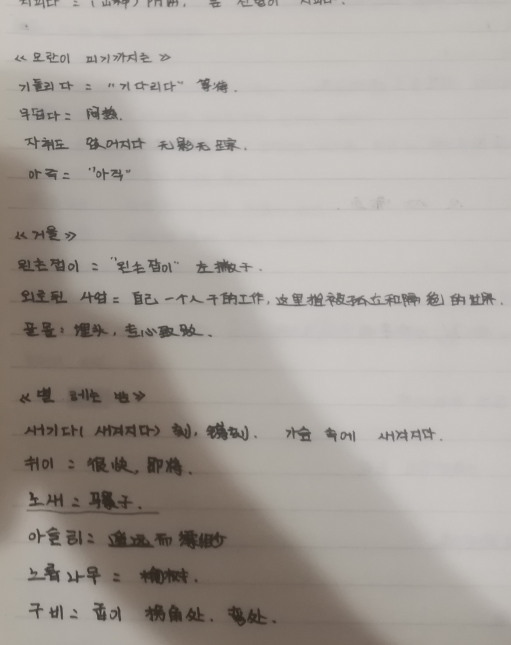 ≪모란이 피기까지는≫
기둘리다 = "기다리다" 等待.
무덥다 = 闷热.
자취도 없어지다 无影无踪.
아즉 = "아직"
≪거울≫
왼손잡이 = "왼손잡이" 左撇子.
외로된 사업 = 自己一个人干的工作, 这里指被孤立和隔绝的世界.
골몰: 埋头, 专心致致.
≪별 헤는 밤≫
새기다( 새겨지다) 刻, 镌刻. 가슴 속에 새겨지다.
쉬이 = 很快, 即将.
노새 = 马骡子.
아슬히 = 遥远而缥缈
느릅나무 =
구비 = 굽이 拐角处, 弯处.